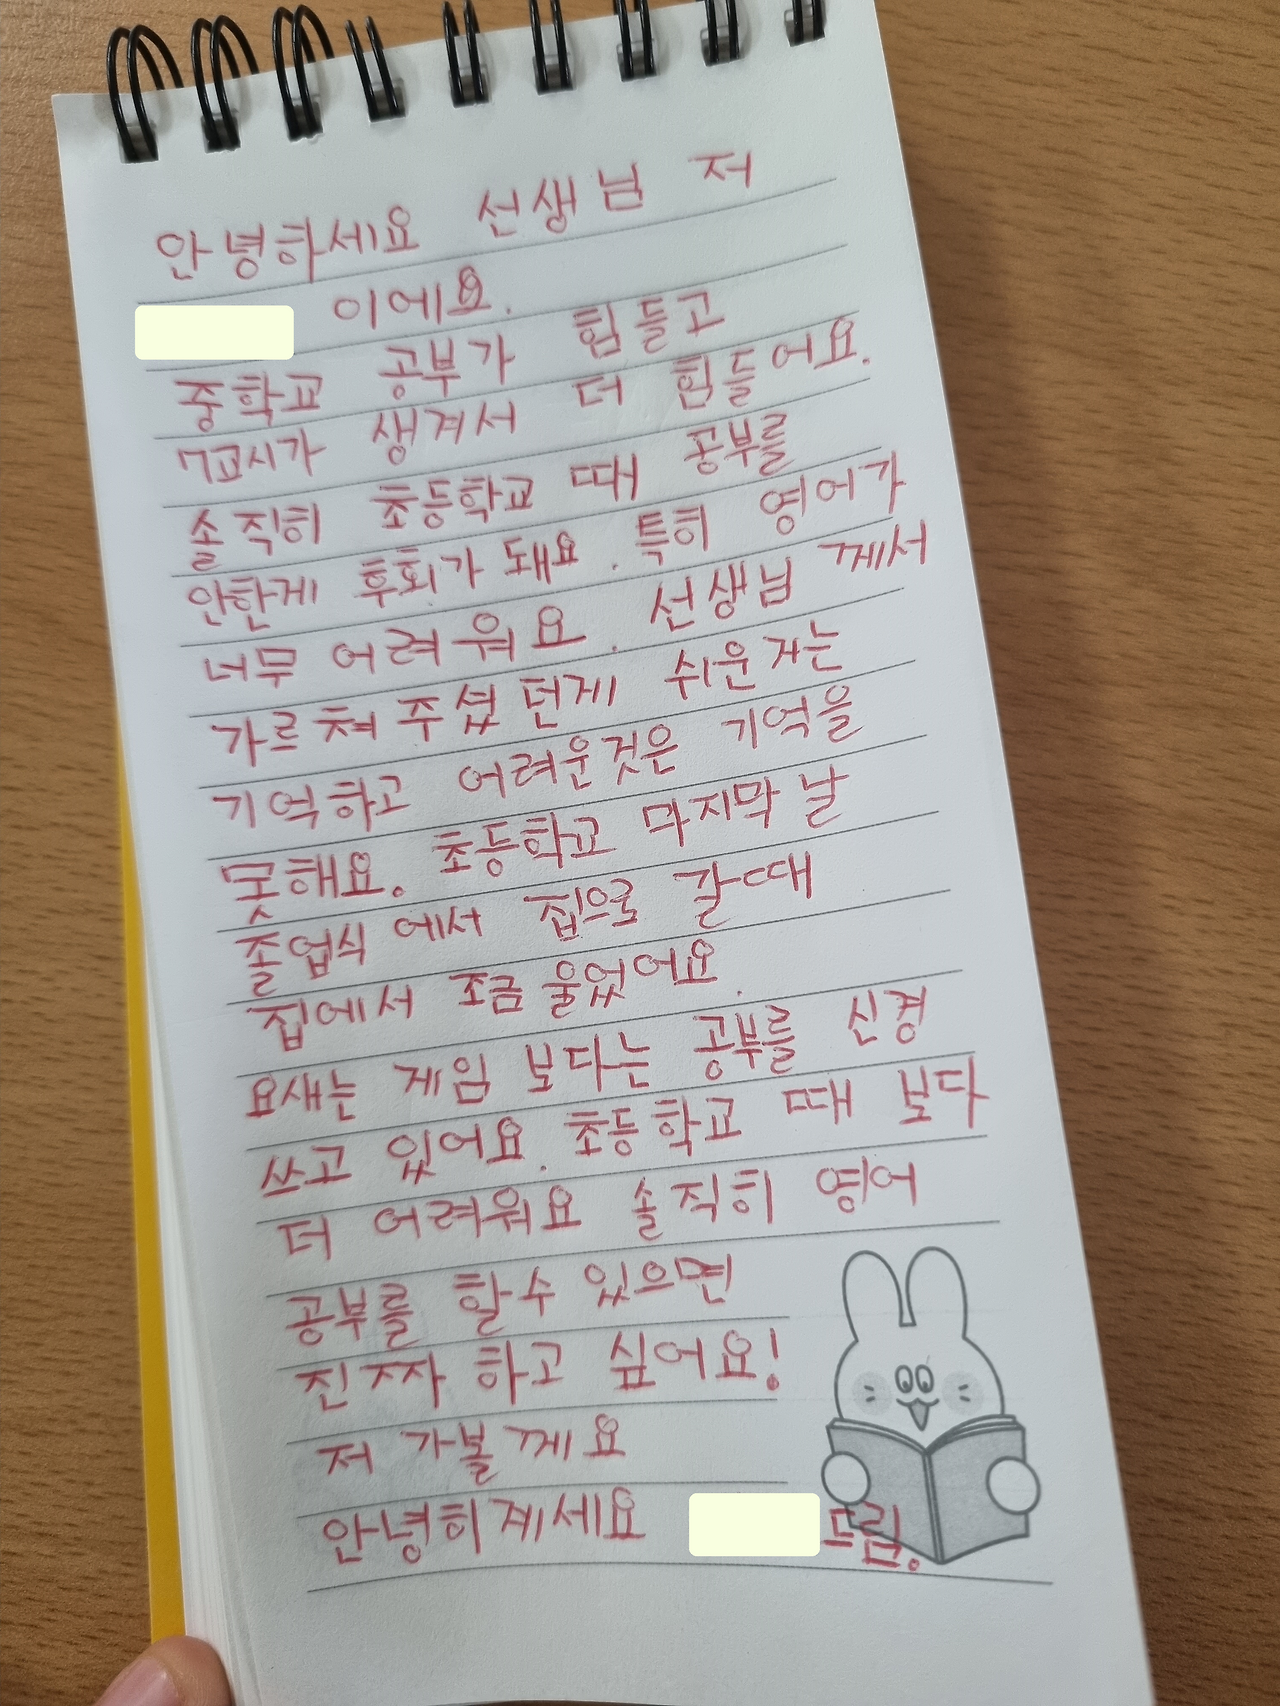 안녕하세요 선생님 저
이에요.
중학교 공부가 힘들고
7교시가 생겨서 더 힘들어요.
솔직히 초등학교 때 공부를
안한게 후회가 돼요. 특히 영어가
너무 어려워요. 선생님 께서
가르쳐 주셨던게 쉬운거는
기억하고 어려운것은 기억을
못해요. 초등학교 마지막 날
졸업식 에서 집으로 갈때
집에서 조금 울었어요.
요새는 게임 보다는 공부를 신경
쓰고 있어요. 초등학교 때 보다
더 어려워요 솔직히 영어
공부를 할수 있으면
진짜 하고 싶어요!
저 가볼께요
안녕히계세요 드림.